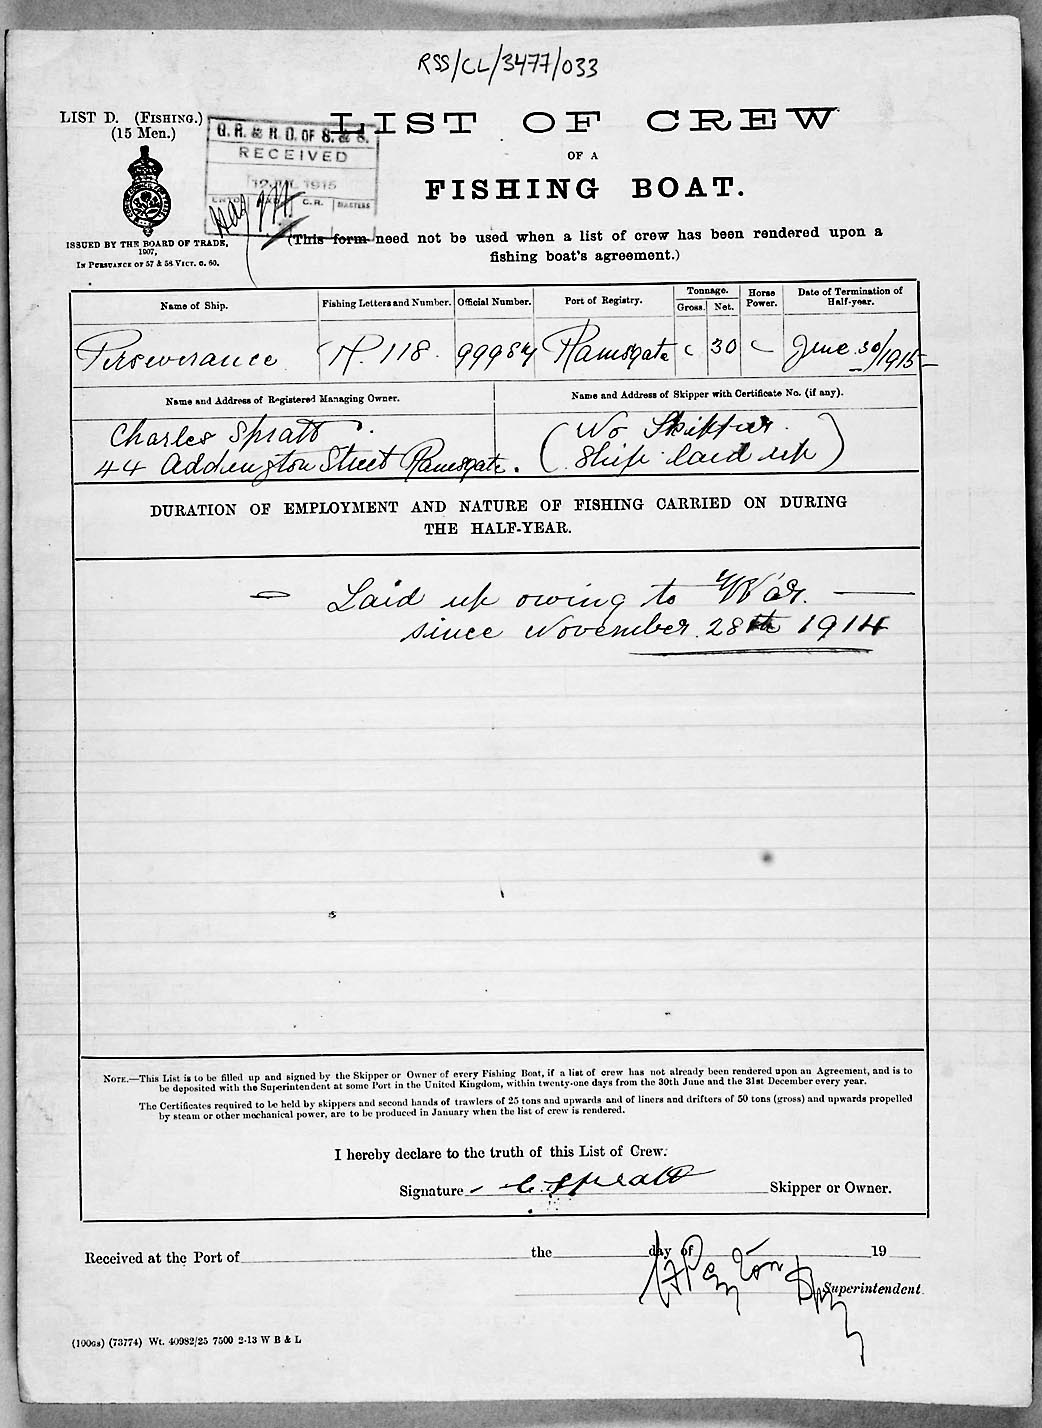 RSS/CL/3477/033
LIST D. (FISHING.)
(15 Men.)
LIST OF CREW
G. R. & R. O. OF S. & S.
RECEIVED
12 JUL 1915
C.R. MASTERS
OF A
FISHING BOAT.
ISSUED BY THE BOARD OF TRADE,
1907,
IN PURSUANCE OF 57 & 58 VICT. C. 60.
(This form need not be used when a list of crew has been rendered upon a
fishing boat's agreement.)
Name of Ship. Fishing Letters and Number. Official Number. Port of Registry. Tonnage. Gross. Net. Horse Power. Date of Termination of Half-year.
Perseverance R. 118. 99984 Ramsgate 30 June 30/1915
Name and Address of Registered Managing Owner. Name and Address of Skipper with Certificate No. (if any).
Charles Spratt (No Skipper.
44 Addington Street Ramsgate. Ship laid up)
DURATION OF EMPLOYMENT AND NATURE OF FISHING CARRIED ON DURING
THE HALF-YEAR.
Laid up owing to War.
since November 28th 1914
NOTE.—This List is to be filled up and signed by the Skipper or Owner of every Fishing Boat, if a list of crew has not already been rendered upon an Agreement, and is to
be deposited with the Superintendent at some Port in the United Kingdom, within twenty-one days from the 30th June and the 31st December every year.
The Certificates required to be held by skippers and second hands of trawlers of 25 tons and upwards and of liners and drifters of 50 tons (gross) and upwards propelled
by steam or other mechanical power, are to be produced in January when the list of crew is rendered.
I hereby declare to the truth of this List of Crew.
Signature C. Spratt Skipper or Owner.
Received at the Port of the day of 19
Superintendent.
(100GS) (73774) Wt. 40982/25 7500 2-13 W B & L